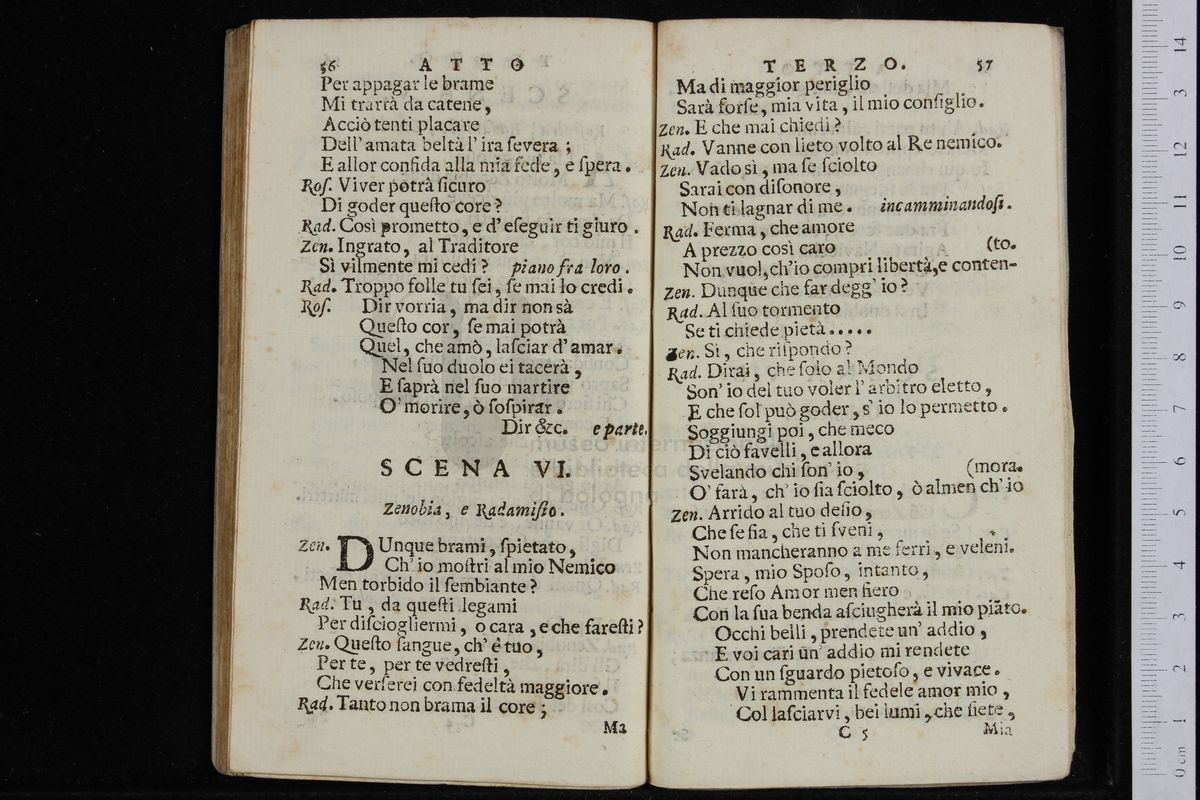 56 ATTO
Per appagar le brame
Mi trarrà da catene,
Acciò tenti placare
Dell' amata beltà l' ira ſevera ;
E allor confida alla mia fede, e ſpera.
Roſ. Viver potrà ſicuro
Di goder queſto core ?
Rad. Così prometto, e d' eſeguir ti giuro .
Zen. Ingrato, al Traditore
Sì vilmente mi cedi ? piano fra loro .
Rad. Troppo folle tu ſei, ſe mai lo credi .
Roſ. Dir vorria, ma dir non sà
Queſto cor, ſe mai potrà
Quel, che amò, laſciar d' amar.
Nel ſuo duolo ei tacerà ,
E ſaprà nel ſuo martire
O' morire, ò ſoſpirar .
Dir &c. e parte.
SCENA VI.
Zenobia, e Radamiſto.
Zen. DUnque brami, ſpietato,
Ch' io moſtri al mio Nemico
Men torbido il ſembiante ?
Rad. Tu, da queſti legami
Per diſciogliermi, o cara , e che fareſti ?
Zen. Queſto ſangue, ch' è tuo,
Per te, per te vedreſti ,
Che verſerei con fedeltà maggiore.
Rad. Tanto non brama il core ;
Ma
TERZO. 57
Ma di maggior periglio
Sarà forſe, mia vita , il mio conſiglio.
Zen. E che mai chiedi ?
Rad. Vanne con lieto volto al Re nemico.
Zen. Vado sì , ma ſe ſciolto
Sarai con diſonore,
Non ti lagnar di me . incamminandoſi.
Rad. Ferma, che amore
A prezzo così caro (to.
Non vuol, ch'io compri libertà, e conten-
Zen. Dunque che far degg' io ?
Rad. Al ſuo tormento
Se ti chiede pietà.....
Zen. Sì, che riſpondo ?
Rad. Dirai, che ſolo al Mondo
Son' io del tuo voler l' arbitro eletto ,
E che ſol può goder, s' io lo permetto .
Soggiungi poi, che meco
Di ciò favelli, e allora
Svelando chi ſon' io , (mora.
O' farà, ch' io ſia ſciolto, ò almen ch' io
Zen. Arrido al tuo deſio,
Che ſe fia, che ti ſveni ,
Non mancheranno a me ferri, e veleni.
Spera, mio Spoſo, intanto,
Che reſo Amor men fiero
Con la ſua benda aſciugherà il mio piãto.
Occhi belli, prendete un' addio ,
E voi cari un' addio mi rendete
Con un ſguardo pietoſo, e vivace.
Vi rammenta il fedele amor mio ,
Col laſciarvi, bei lumi, che ſiete ,
C 5 Mia
museo inter
biblioteca
di bologna
0 cm 1 2 3 4 5 6 7 8 9 10 11 12 13 14